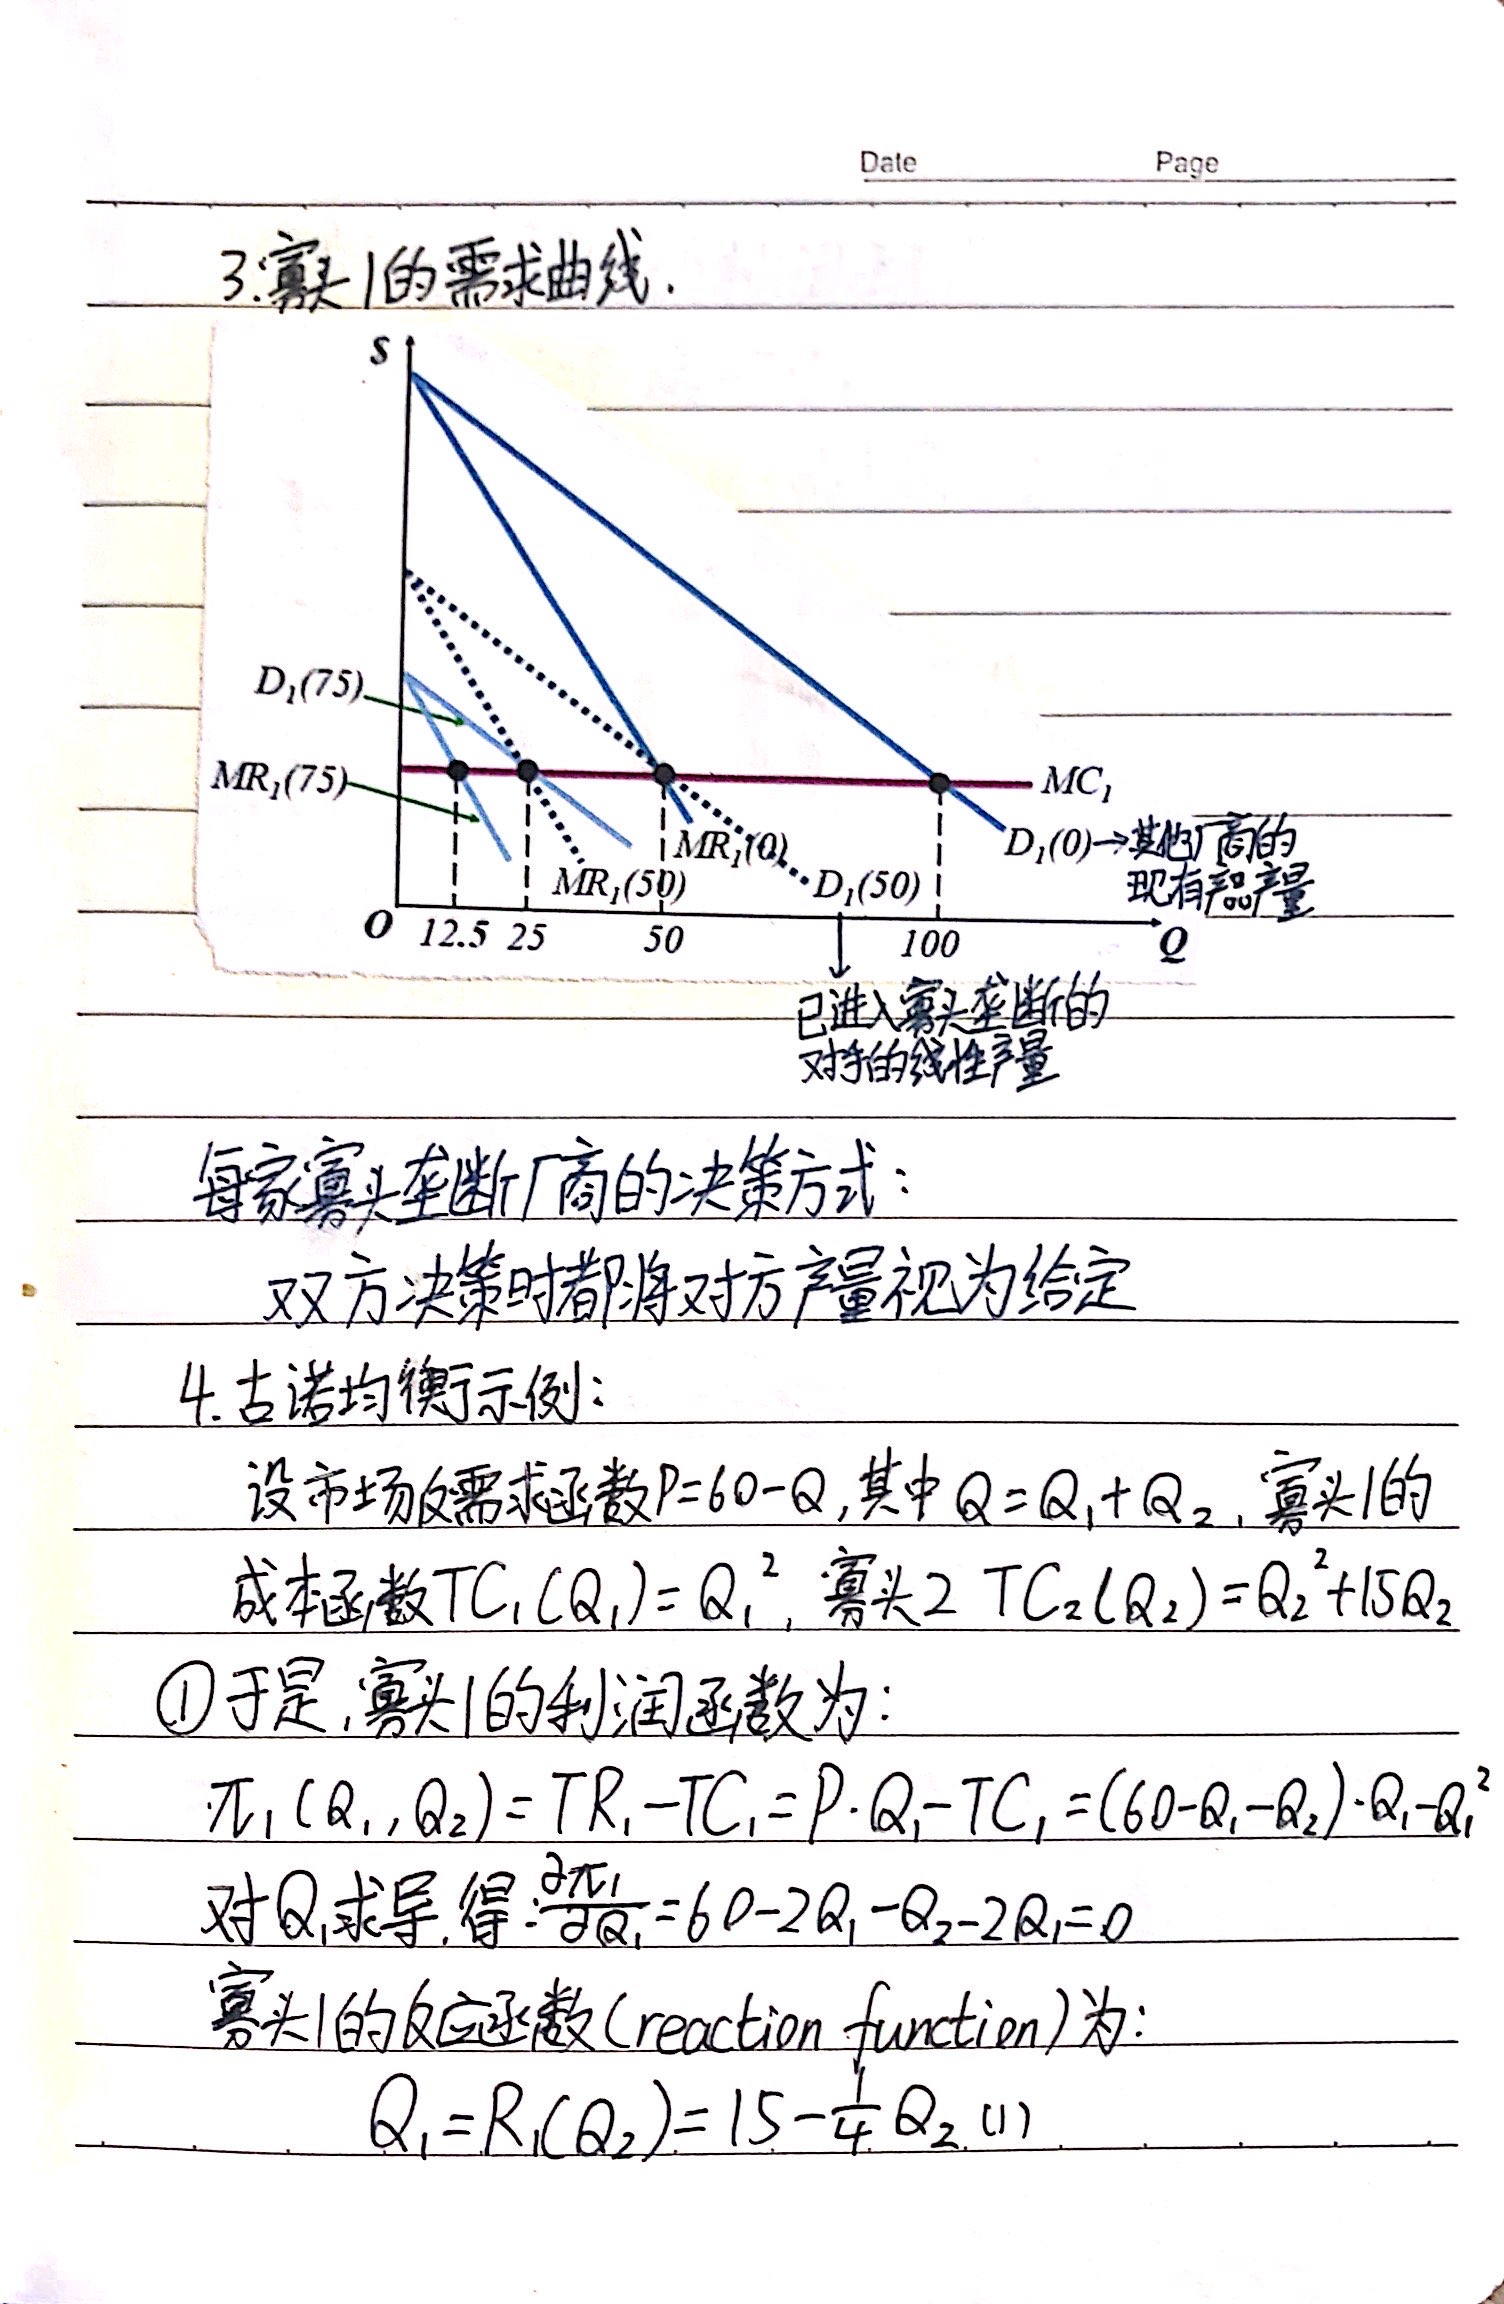 Date Page
3.寡头1的需求曲线.
S
D₁(75)
MR₁(75)
MC₁
MR₁(0)
D₁(0)→其他厂商的
现有产品产量
MR₁(50)
D₁(50)
O 12.5 25 50 100 Q
已进入寡头垄断的
对手的线性产量
每家寡头垄断厂商的决策方式:
双方决策时都将对方产量视为给定
4.古诺均衡示例:
设市场反需求函数P=60-Q,其中Q=Q₁+Q₂,寡头1的
成本函数TC₁(Q₁)=Q₁²,寡头2 TC₂(Q₂)=Q₂²+15Q₂
①于是,寡头1的利润函数为:
π₁(Q₁,Q₂)=TR₁-TC₁=P·Q₁-TC₁=(60-Q₁-Q₂)·Q₁-Q₁²
对Q₁求导,得:∂π₁/∂Q₁=60-2Q₁-Q₂-2Q₁=0
寡头1的反应函数(reaction function)为:
Q₁=R₁(Q₂)=15-1/4Q₂ (1)